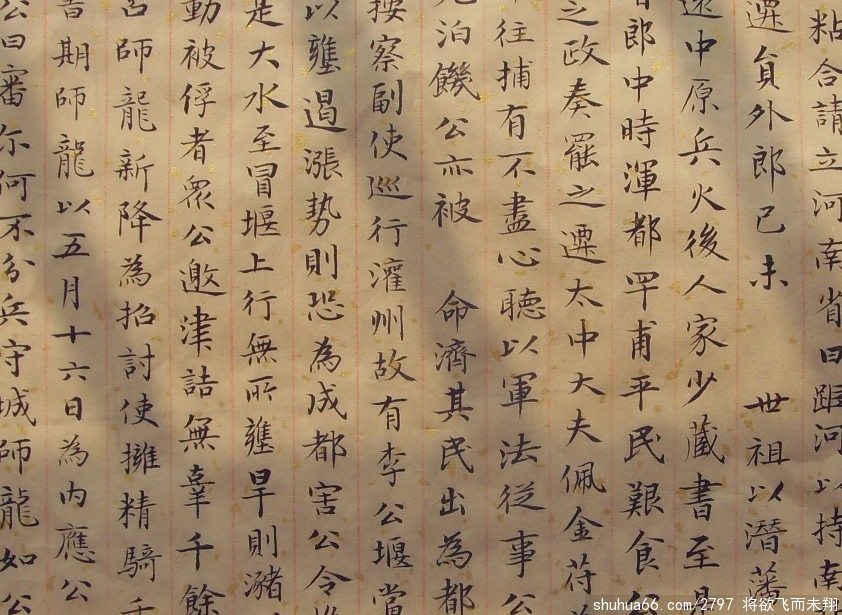 粘合請立河南省曰距河以持南
遷負外郎已未 世祖以潛藩
遠中原兵火後人家少藏書至是
郎中時渾都罕甫平民艱食
之政奏罷之遷太中大夫佩金苻
往捕有不盡心聽以軍法從事公
泊饑公亦被 命濟其民出為都
按察副使巡行灌州故有李公堰當
以壅遏漲勢則恐為成都害公令
是大水至冒堰上行無所壅旱則瀦
動被俘者衆公邀津詰無辜千餘
呂師龍新降為招討使擁精騎千
期師龍以五月十六日為內應公
公曰審尔何不分兵守城師龍如公
shuhua66.com/2797 将欲飞而未翔